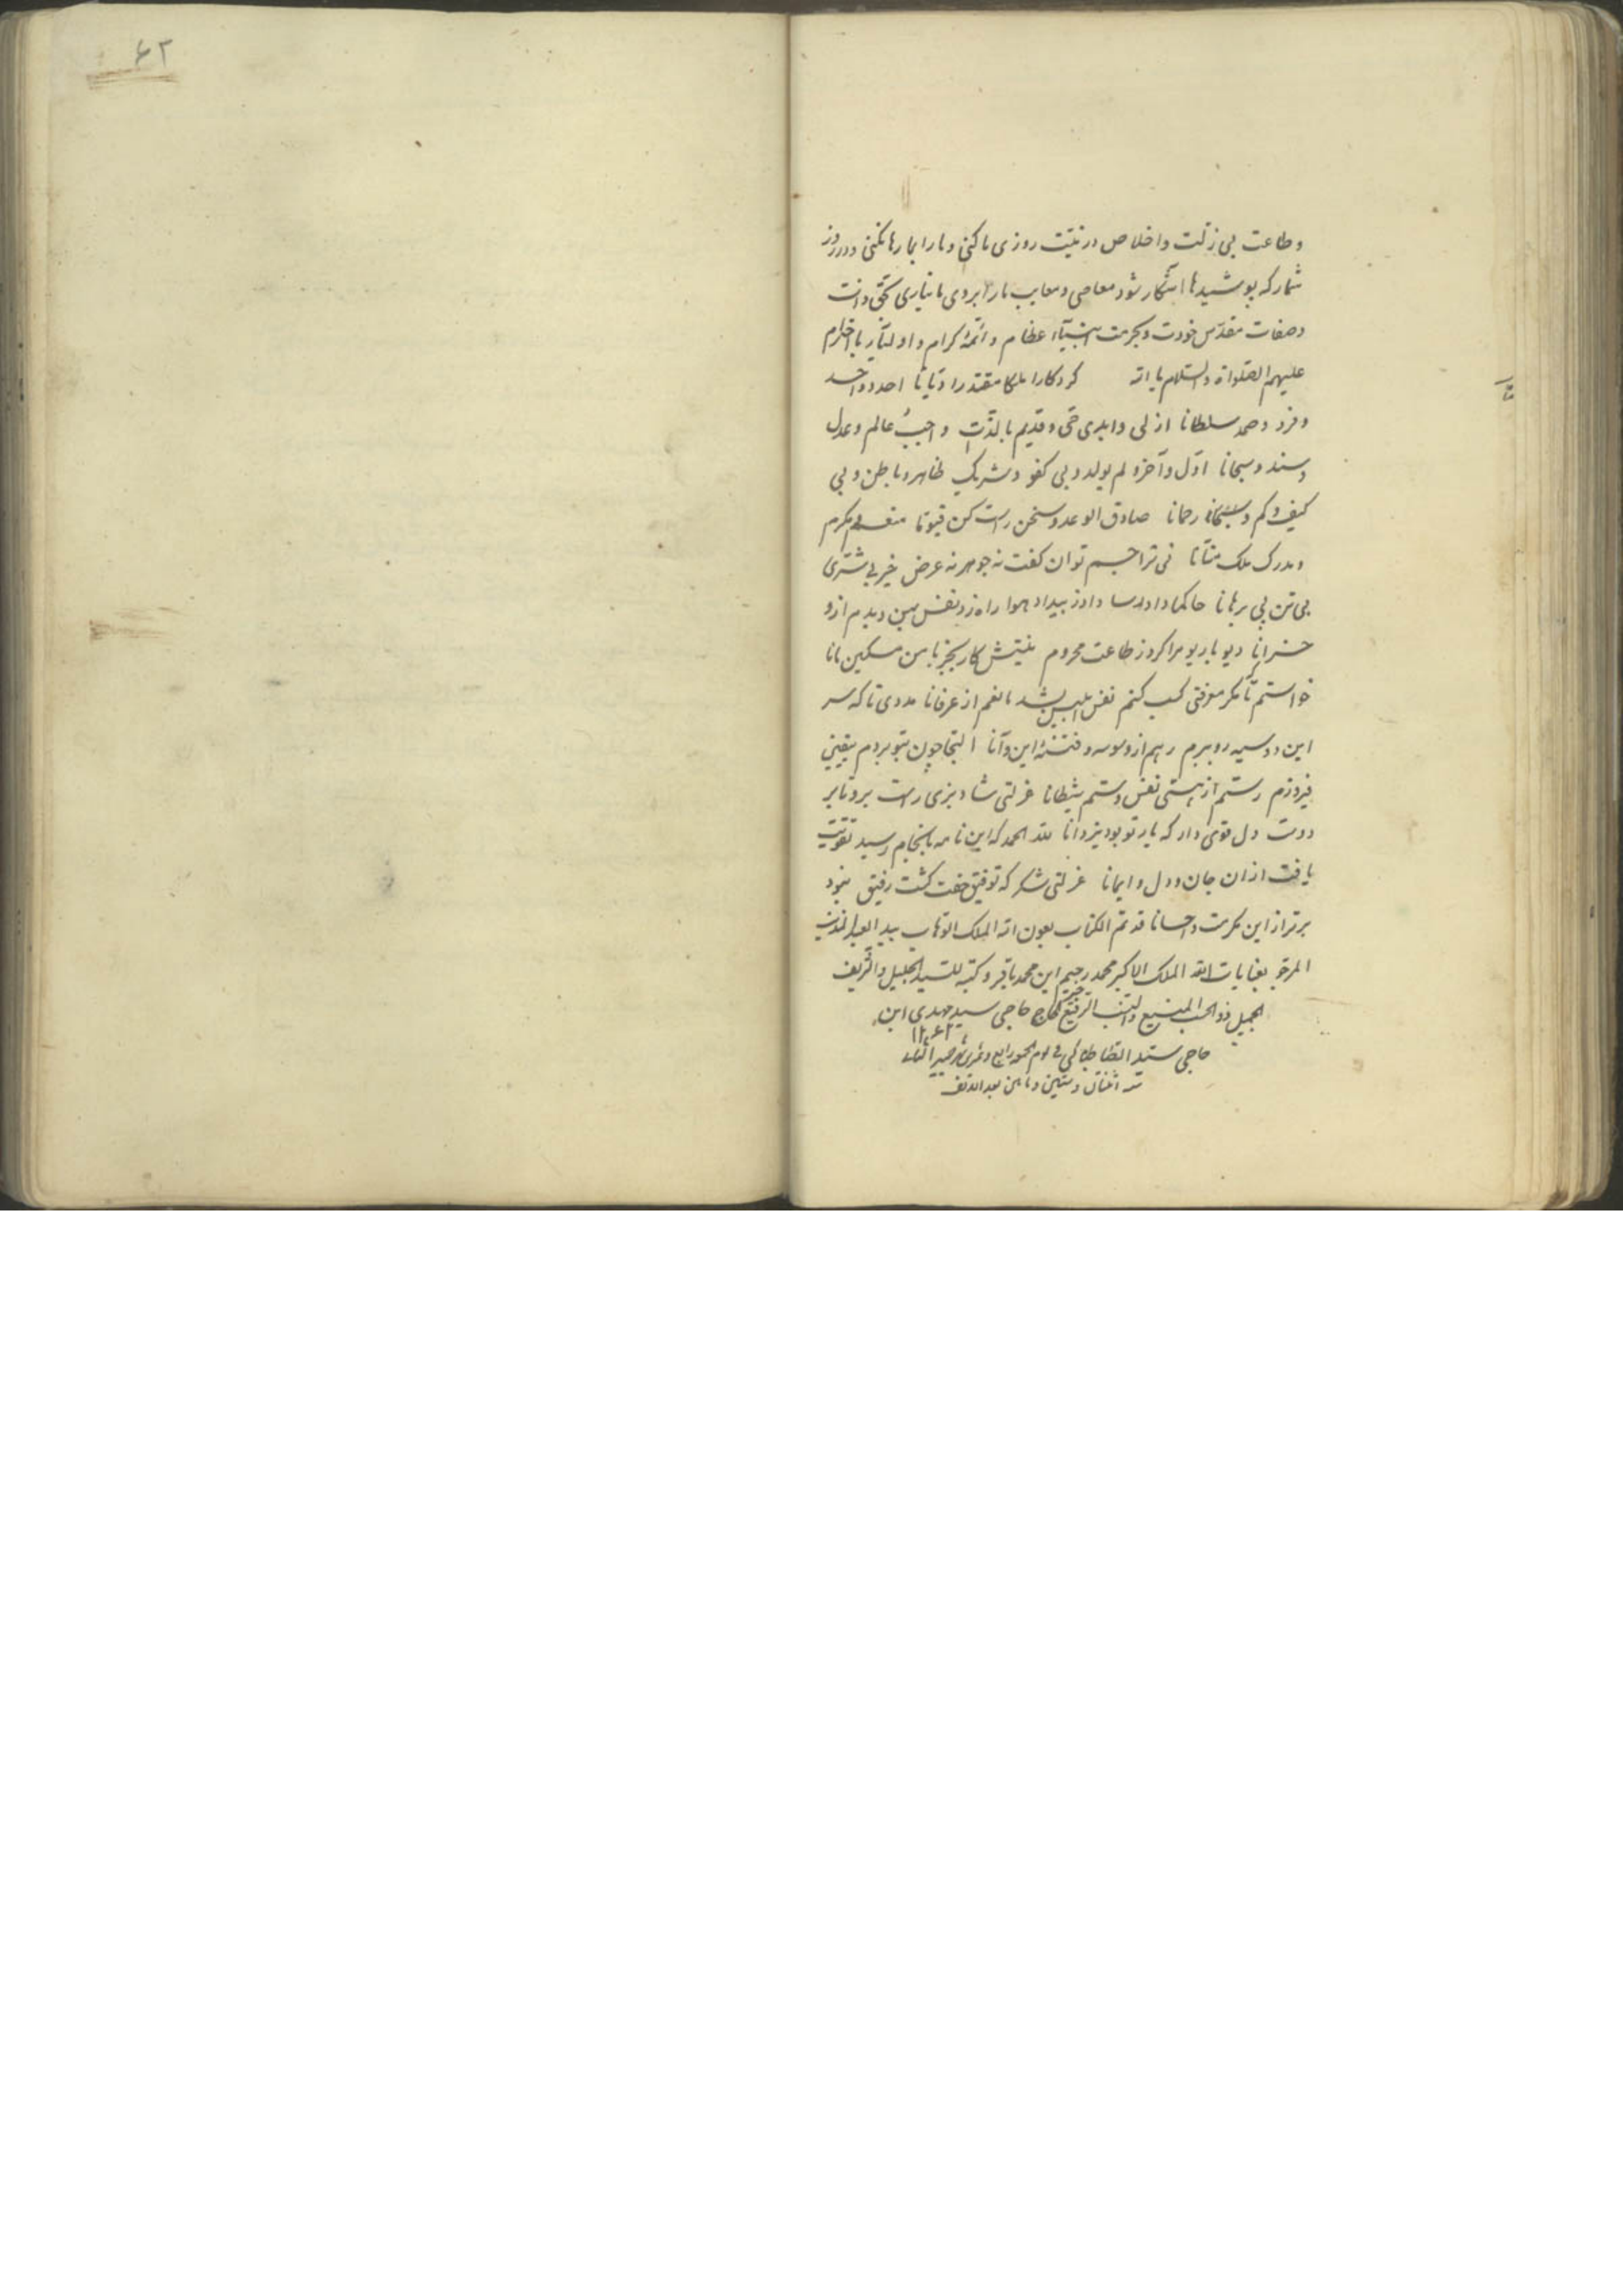 ۶۲
و طاعت بی زلت و اخلاص در نیت روزی ما کنی و ما را بما رها نکنی و در روز
شمار که پوشیدها آشکار شود معاصی و معایب ما را بروی ما نیاری بحق ذات
و صفات مقدس خودت و بحرمت انبیاء عظام و ائمهٔ کرام و اولیای با احترام
علیهم الصلواة و السلام یا الله کردکارا ملکا مقتدرا دیانا احد و واحد
و فرد و صمد سلطانا ازلی و ابدی حی و قدیم بالذات واجب عالم و عدل
و سند و سبحانا اول و آخر و لم یولد و بی کفو و شریک ظاهر و باطن و بی
کیف و کم و رحمانا صادق الوعد و سخن راست کن قیوما منعم مکرم
و مدرک ملک منانا نی ترا جسم توان کفت نه جوهر نه عرض
بی تن بی برهانا حاکما داد ز بیداد هوا راه زد نفس ببین دیدم ازو
خسرانا دیو با ریو مرا کرد ز طاعت محروم کار بجز با من مسکین مانا
خواستم تا مکر معرفتی کسب کنم نفس ابلیس بشد مانعم از عرفانا مددی تا که سر
این دو سیه رو ببرم رهم از وسوسه و فتنهٔ این و آنا التجا چون بتو بردم بیقین
فیروزم رستم از هستی نفس و ستم شیطانا عزلتی شاد بزی راست برو تا بر
دوست دل قوی دار که یار تو بود یزدانا لله الحمد که این نامه بانجام رسید تقویت
یافت از ان جان و دل و ایمانا عزلتی شکر که توفیق کشت رفیق نبود
برتر از این مکرمت و احسانا قد تم الکتاب بعون الله الملک الوهاب بید العبد المذنب
المرجو بعنایات الله الملک الاکبر محمد رحیم ابن محمد باقر و کتبه للسید الجلیل و الشریف
الجمیل ذو الحسب المنیع و النسب الرفیع حاجی سید مهدی ابن
۱۲۶۲
حاجی سید الطباطبائی فی یوم الجمعه رابع و
سنه اثنان و ستین و ماتین بعد الالف